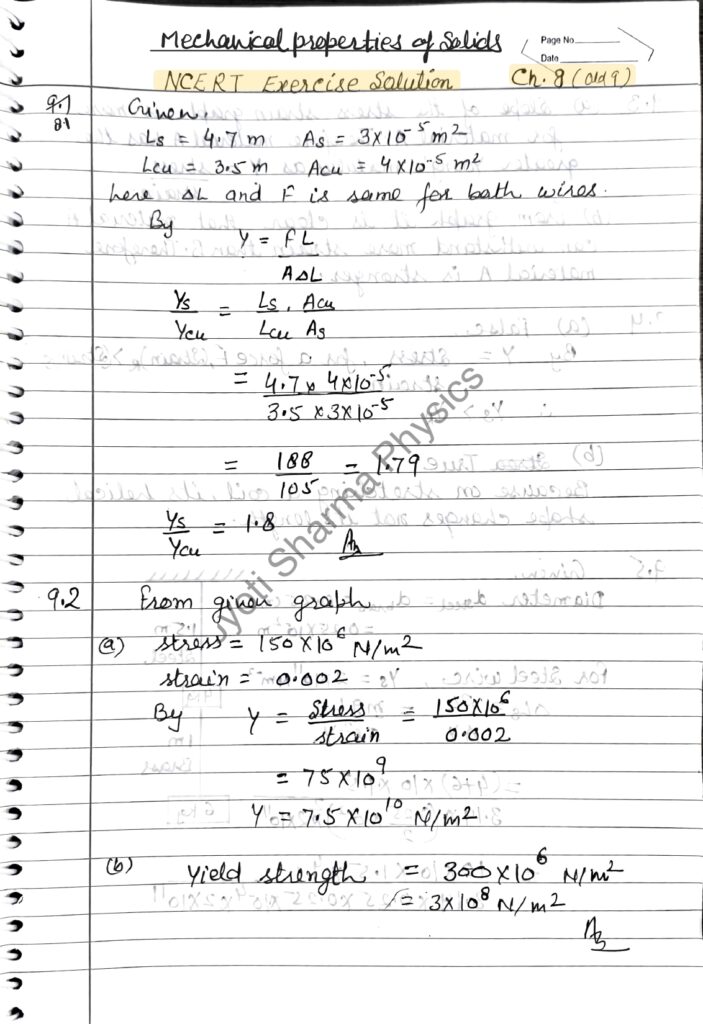 Mechanical properties of Solids
Page No.
Date
NCERT Exercise Solution Ch. 8 (Old 9)
9.1
8.1
Given,
Ls = 4.7 m As = 3×10⁻⁵ m²
Lcu = 3.5 m Acu = 4×10⁻⁵ m²
here ΔL and F is same for both wires.
By
Y = FL / AΔL
Ys / Ycu = Ls . Acu / Lcu As
= 4.7 × 4×10⁻⁵ / 3.5 × 3×10⁻⁵
= 188 / 105 = 1.79
Ys / Ycu = 1.8 Ans
Jyoti Sharma Physics
9.2 From given graph
(a) stress = 150×10⁶ N/m²
strain = 0.002
By Y = Stress / strain = 150×10⁶ / 0.002
= 75×10⁹
Y = 7.5×10¹⁰ N/m²
(b) Yield strength = 300×10⁶ N/m²
= 3×10⁸ N/m²
Ans